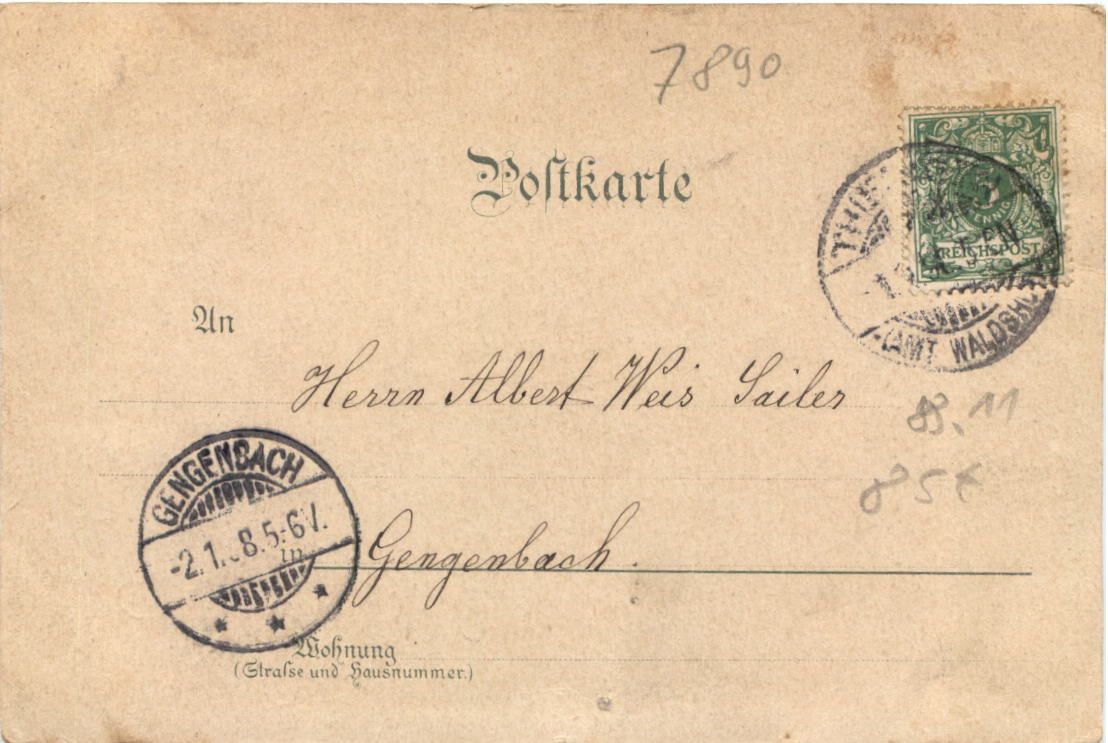 7890
Postkarte
5
PFENNIG
REICHSPOST
(AMT WALDSHUT)
An
Herrn Albert Weis Sailer
83.11
GENGENBACH
-2.1. 8.5-6V.
in Gengenbach.
Wohnung
(Strasse und Hausnummer.)